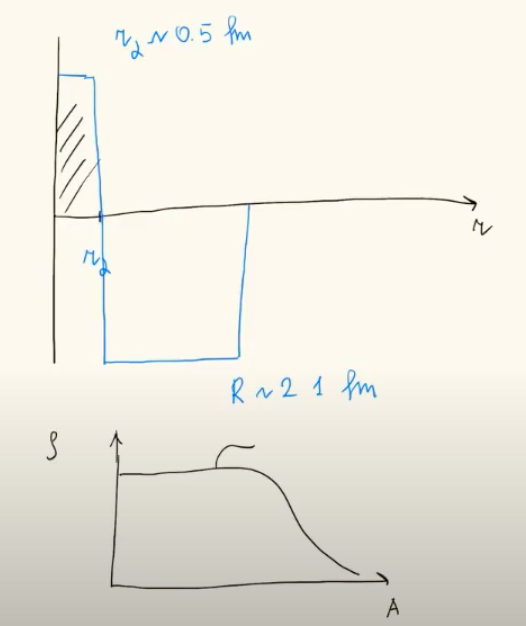 r₂ ~ 0.5 fm
r
r₂
R ~ 2 1 fm
ρ
A